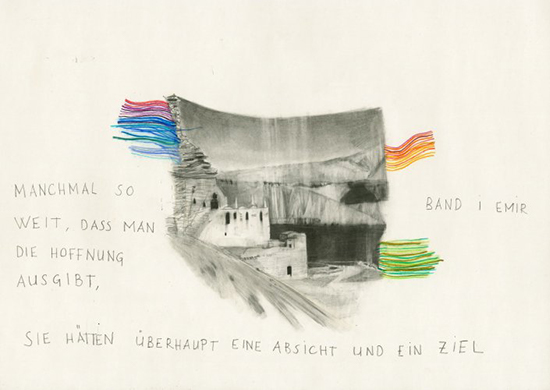 MANCHMAL SO
WEIT, DASS MAN
DIE HOFFNUNG
AUSGIBT,
BAND I EMIR
SIE HÄTTEN ÜBERHAUPT EINE ABSICHT UND EIN ZIEL